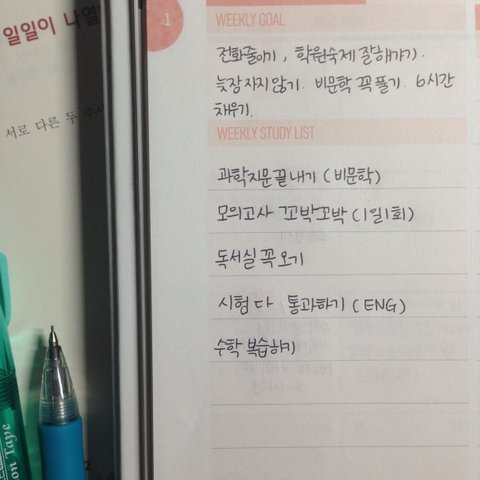 일일이 나열
서로 다른 두
1
WEEKLY GOAL
전화줄이기, 학원숙제 잘해가기.
늦장 자지 않기. 비문학 꼭 풀기. 6시간
채우기.
WEEKLY STUDY LIST
과학지문 끝내기 (비문학)
모의고사 꼬박꼬박 (1일1회)
독서실 꼭 오기
시험 다 통과하기 (ENG)
수학 복습하기
on Tape